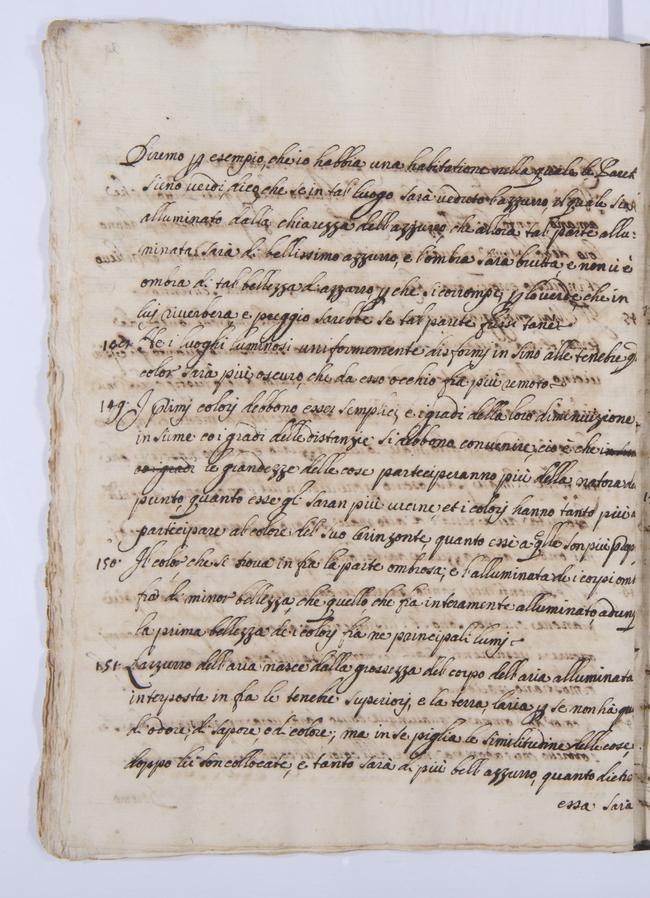 Diremo p esempio, che io habbia una habitatione nella quale le Paret
sieno verdi, dico che se in tal luogo sarà veduto l'azzurro, il quale sia
alluminato dalla chiarezza dell'azzurro, che allora tal parte allu-
minata sarà di bellissimo azzurro, e l'ombra sara brutta, e non vi è
ombra di tal bellezza d'azzurro p che si corrompe p lo verde che in
lui riverbera e peggio sarebbe se tal parete fussi tanè
Ne i luoghi luminosi uniformemente disformj in sino alle tenebre q
color sarà più oscuro, che da esso occhio fia più remoto
149. I primj colorj debbono esser semplici, e i gradi della loro diminuizione
insieme co i gradi delle distanzie si debbono convenire, cio è che
le grandezze delle cose parteciperanno più della natora del
punto, quanto esse gli saran più vicine, et i colorj hanno tanto più a
partecipare al colore del suo orrizonte, quanto essi a qllo son più
150. Il color che si trova in fra la parte ombrosa, e l'alluminata de i corpi omb
fia di minor bellezza, che quello che fia interamente alluminato, adunq
la prima bellezza de i colorj fia ne principali lumj
151. L'azzurro dell'aria nasce dalla grossezza del corpo dell'aria alluminata
interposta in fra le tenebre superiorj, e la terra, l'aria p se non hà qu
d'odore, di sapore o di colore; ma in se piglia le similitudine delle cose
doppo lei son collocate, e tanto sarà di più bell'azzurro, quanto dietro
essa sara